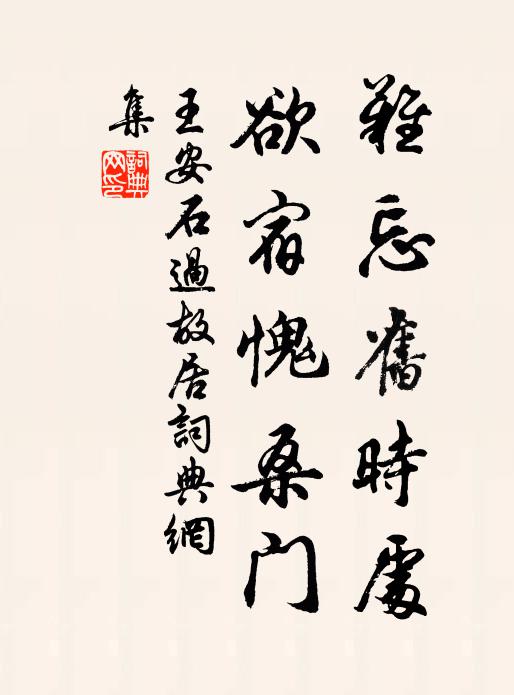 難忘舊時處
欲宿愧桑門
王安石過故居詞典網
集
詞典
网印